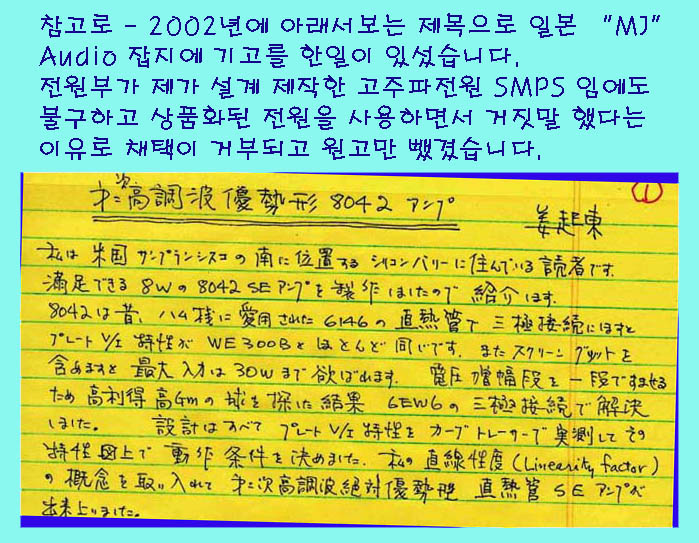 참고로 - 2002년에 아래서보는 제목으로 일본 “MJ”
Audio 잡지에 기고를 한일이 있섰습니다.
전원부가 제가 설계 제작한 고주파전원 SMPS 임에도
불구하고 상품화된 전원을 사용하면서 거짓말 했다는
이유로 채택이 거부되고 원고만 뺐겼습니다.
①
次高調波優勢形 8042 アンプ
姜起東
私は米国サンフランシスコの南に位置するシリコンバリーに住んでいる読者です。
満足できる 8Wの 8042 SEアンプを製作しましたので紹介します。
8042は昔、ハム機に愛用された 6146の直熱管で三極接続にしますと
プレート V/I 特性が WE300Bとほとんど同じです。またスクリーングリッドを
含めますと最大入力は30Wまで 電圧増幅段を一段ですませる
ため高利得高Gmの球を探した結果 6EW6の三極接続で解決
しました。 設計はすべてプレート V/I 特性をカーブトレーサーで実測してその
特性図上で動作条件を決めました。私の直線性度(Linearity factor)
の概念を取り入れて 次高調波絶対優勢型 直熱管 SEアンプが
出来上りました。